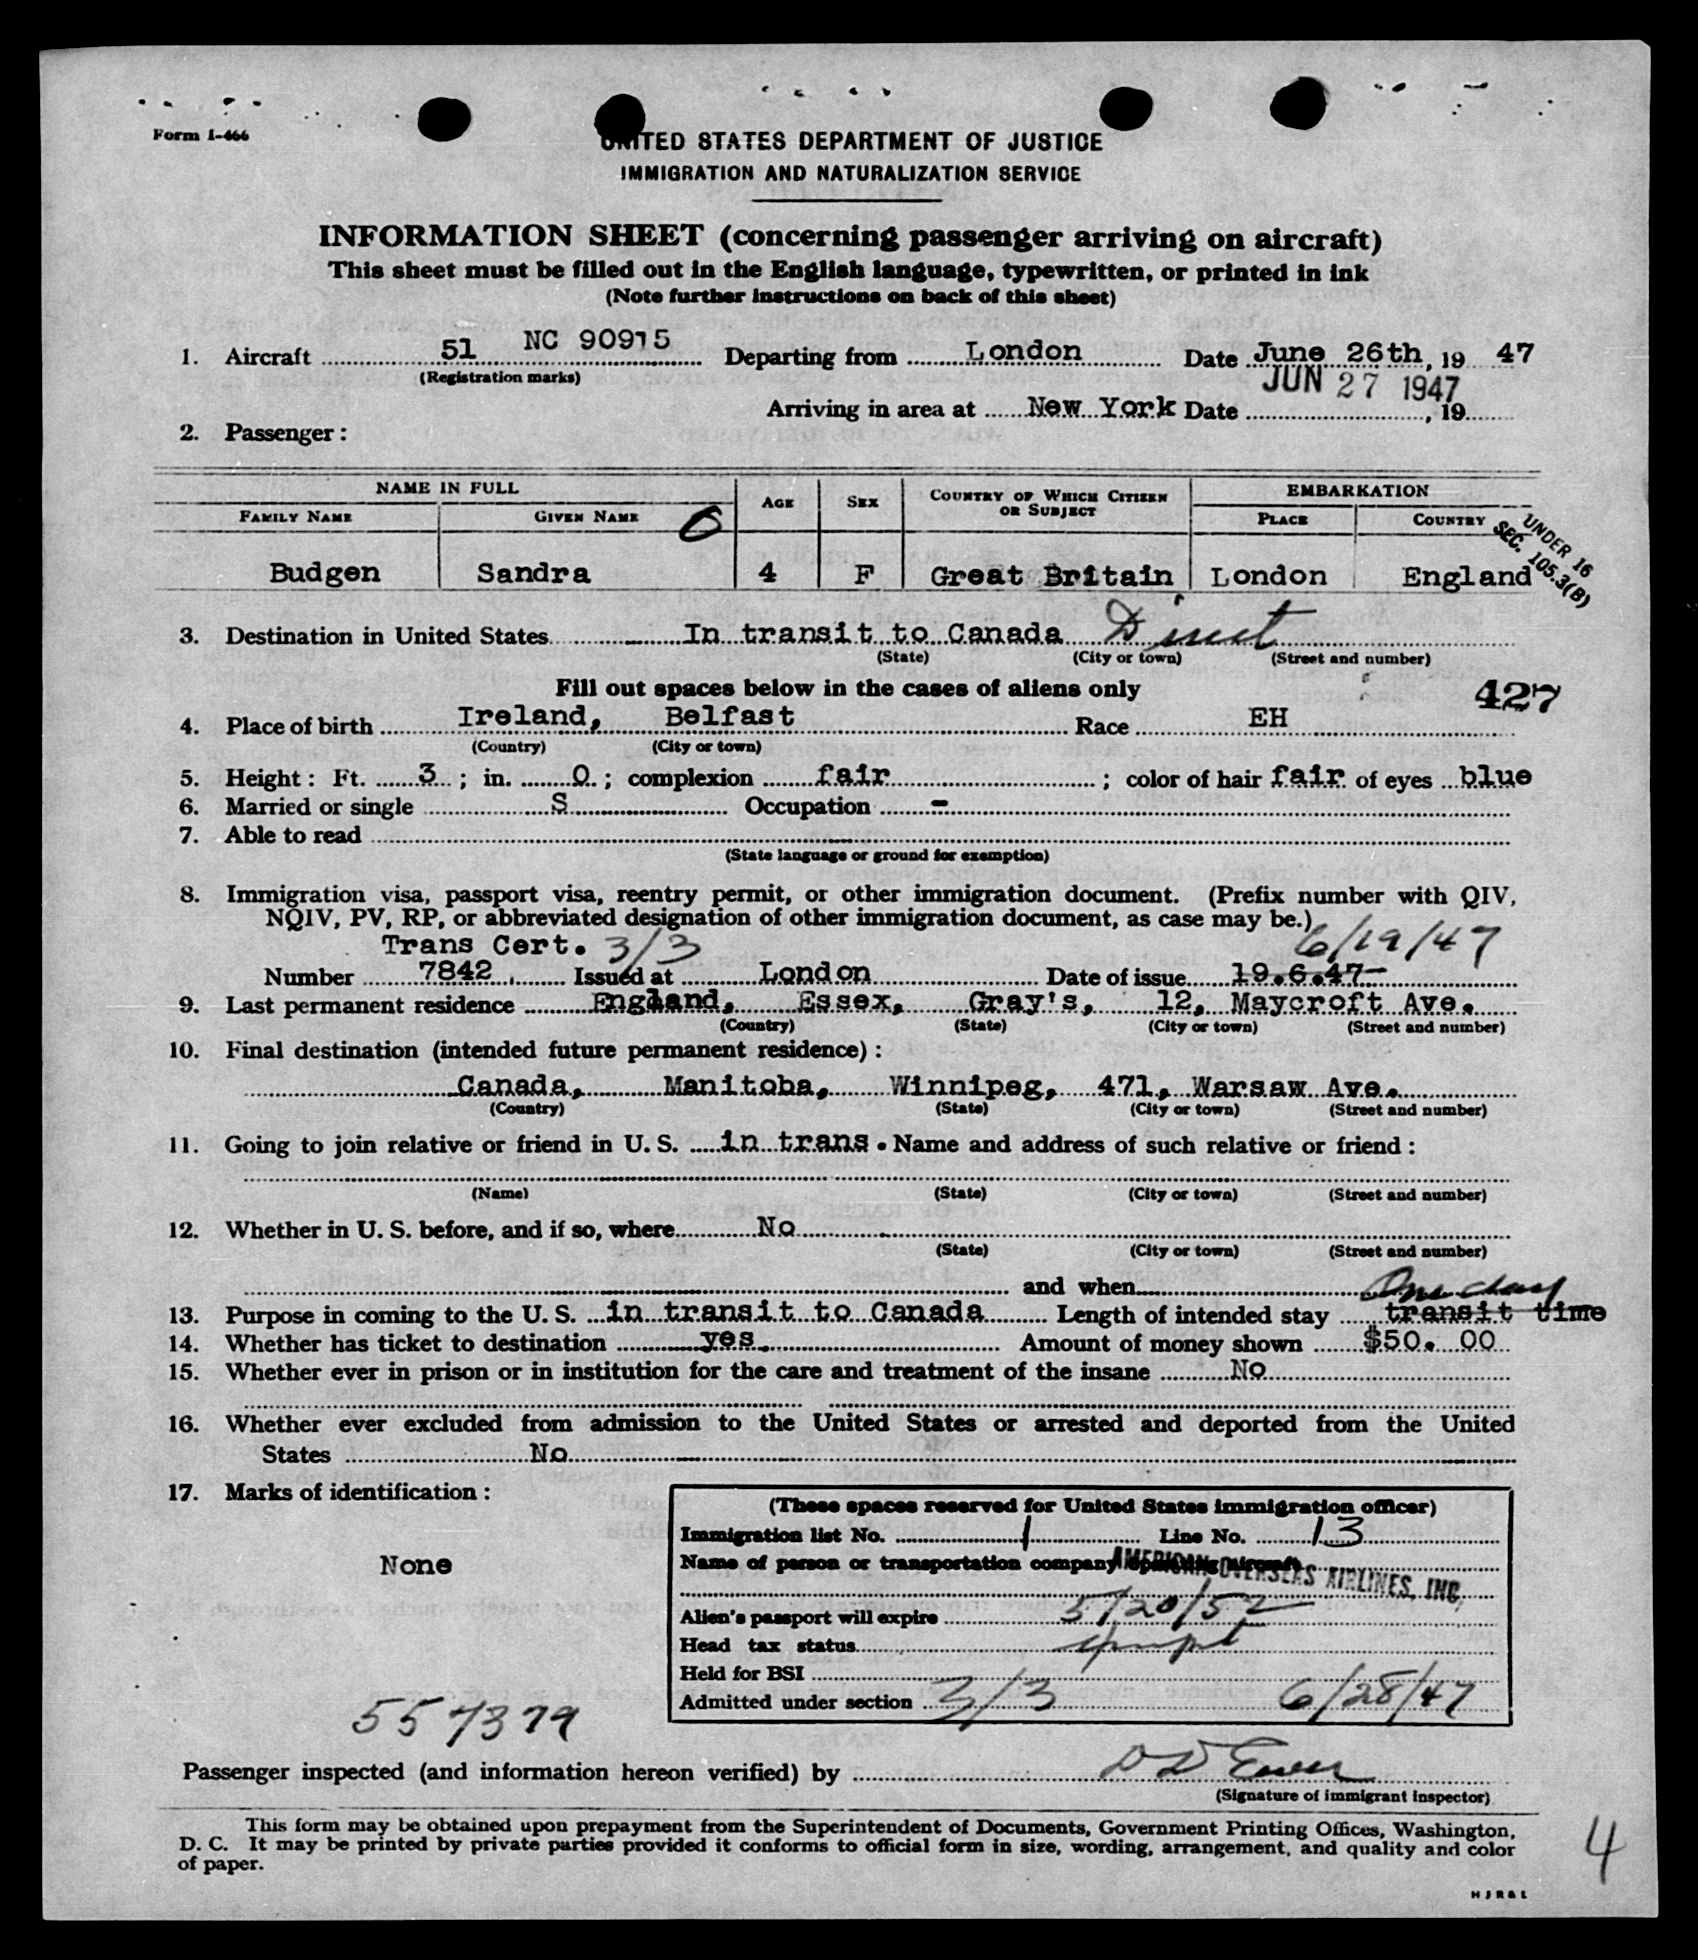 Form I-466
UNITED STATES DEPARTMENT OF JUSTICE
IMMIGRATION AND NATURALIZATION SERVICE
INFORMATION SHEET (concerning passenger arriving on aircraft)
This sheet must be filled out in the English language, typewritten, or printed in ink
(Note further instructions on back of this sheet)
1. Aircraft 51 NC 90915 Departing from London Date June 26th, 19 47
(Registration marks)
JUN 27 1947
Arriving in area at New York Date , 19
2. Passenger:
NAME IN FULL AGE SEX COUNTRY OF WHICH CITIZEN OR SUBJECT EMBARKATION
FAMILY NAME GIVEN NAME PLACE COUNTRY
UNDER 16
SEC. 105.3(B)
Budgen Sandra 4 F Great Britain London England
3. Destination in United States In transit to Canada Direct
(State) (City or town) (Street and number)
Fill out spaces below in the cases of aliens only
427
4. Place of birth Ireland, Belfast Race EH
(Country) (City or town)
5. Height: Ft. 3 ; in. 0 ; complexion fair ; color of hair fair of eyes blue
6. Married or single S Occupation -
7. Able to read
(State language or ground for exemption)
8. Immigration visa, passport visa, reentry permit, or other immigration document. (Prefix number with QIV,
NQIV, PV, RP, or abbreviated designation of other immigration document, as case may be.)
Trans Cert. 3/3 6/19/47
Number 7842 Issued at London Date of issue 19.6.47-
9. Last permanent residence England, Essex, Gray's, 12, Maycroft Ave.
(Country) (State) (City or town) (Street and number)
10. Final destination (intended future permanent residence):
Canada, Manitoba, Winnipeg, 471, Warsaw Ave.
(Country) (State) (City or town) (Street and number)
11. Going to join relative or friend in U. S. in trans. Name and address of such relative or friend:
(Name) (State) (City or town) (Street and number)
12. Whether in U. S. before, and if so, where No
(State) (City or town) (Street and number)
and when
One day
13. Purpose in coming to the U. S. in transit to Canada Length of intended stay transit time
14. Whether has ticket to destination yes. Amount of money shown $50. 00
15. Whether ever in prison or in institution for the care and treatment of the insane No
16. Whether ever excluded from admission to the United States or arrested and deported from the United
States No
17. Marks of identification:
None
(These spaces reserved for United States immigration officer)
Immigration list No. 1 Line No. 13
Name of person or transportation company operating aircraft
AMERICAN OVERSEAS AIRLINES, INC.
Alien's passport will expire 5/20/52
Head tax status exempt
Held for BSI
Admitted under section 3/3 6/28/47
557379
Passenger inspected (and information hereon verified) by
(Signature of immigrant inspector)
This form may be obtained upon prepayment from the Superintendent of Documents, Government Printing Offices, Washington,
D. C. It may be printed by private parties provided it conforms to official form in size, wording, arrangement, and quality and color
of paper.
4
H J R & L